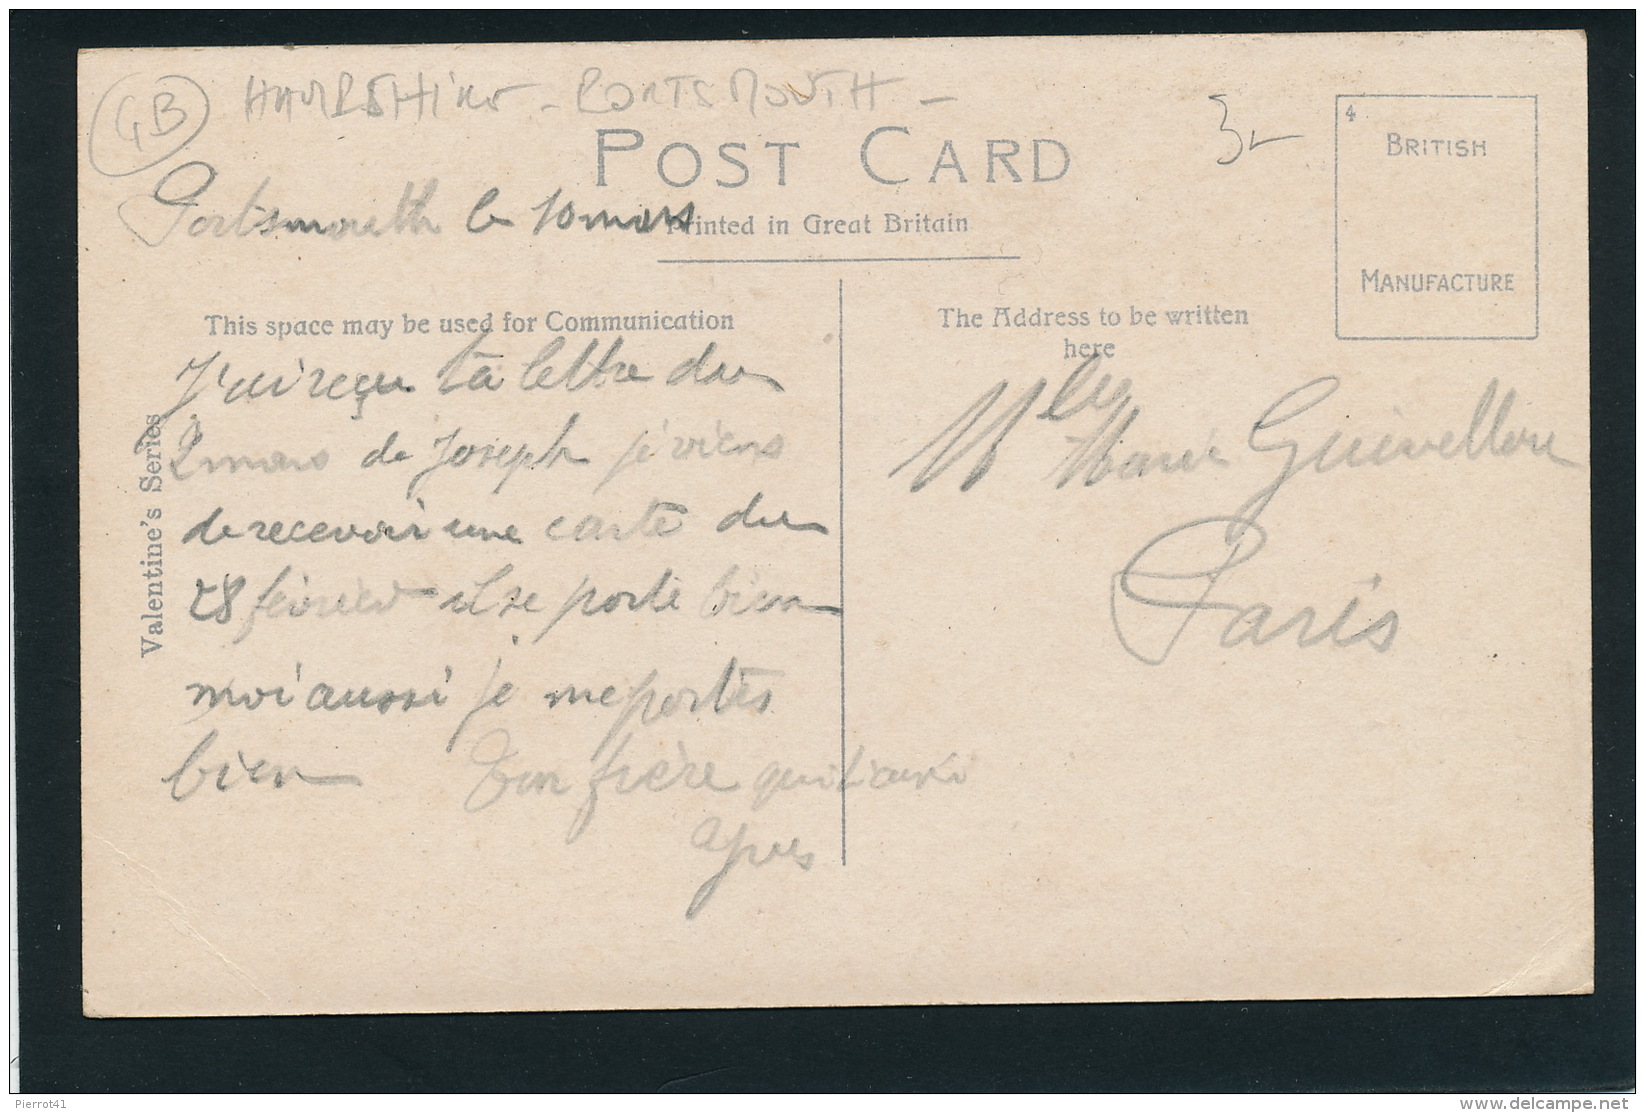 GB
HAMPSHIRE - PORTSMOUTH -
3
4
BRITISH
MANUFACTURE
POST CARD
Portsmouth le 10 mars
Printed in Great Britain
This space may be used for Communication
The Address to be written
here
Valentine's Series
J'ai reçu ta lettre du
2 mars de Joseph je viens
de recevoir une carte du
28 février il se porte bien
moi aussi je me portes
bien Ton frère qui
yves
Mlle Marie
Paris
Pierrot41
www.delcampe.net